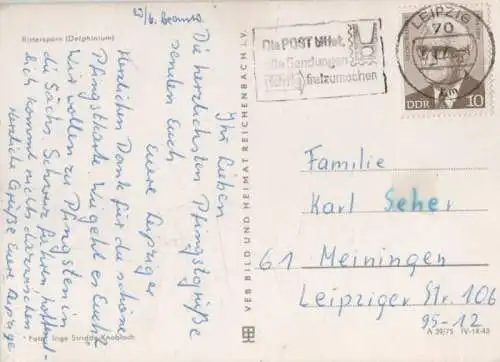 Rittersporn (Delphinium)
Ihr Lieben
Die herzlichsten Pfingstgrüße
senden Euch
Eure Leipziger
Herzlichen Dank für die schöne
Pfingstkarte. Wie geht es Euch?
Wir wollen zu Pfingsten in
die Sächs. Schweiz fahren, hoffent-
lich kommt nichts dazwischen
Herzliche Grüße Eure
Foto: Inge Stridde-Knobloch
VEB BILD UND HEIMAT REICHENBACH I. V.
Die POST bittet,
die Sendungen
freizumachen
LEIPZIG
70
DDR 10
Familie
Karl Seher
61 Meiningen
Leipziger Str. 106
95-12
A 39/75 IV-14-45